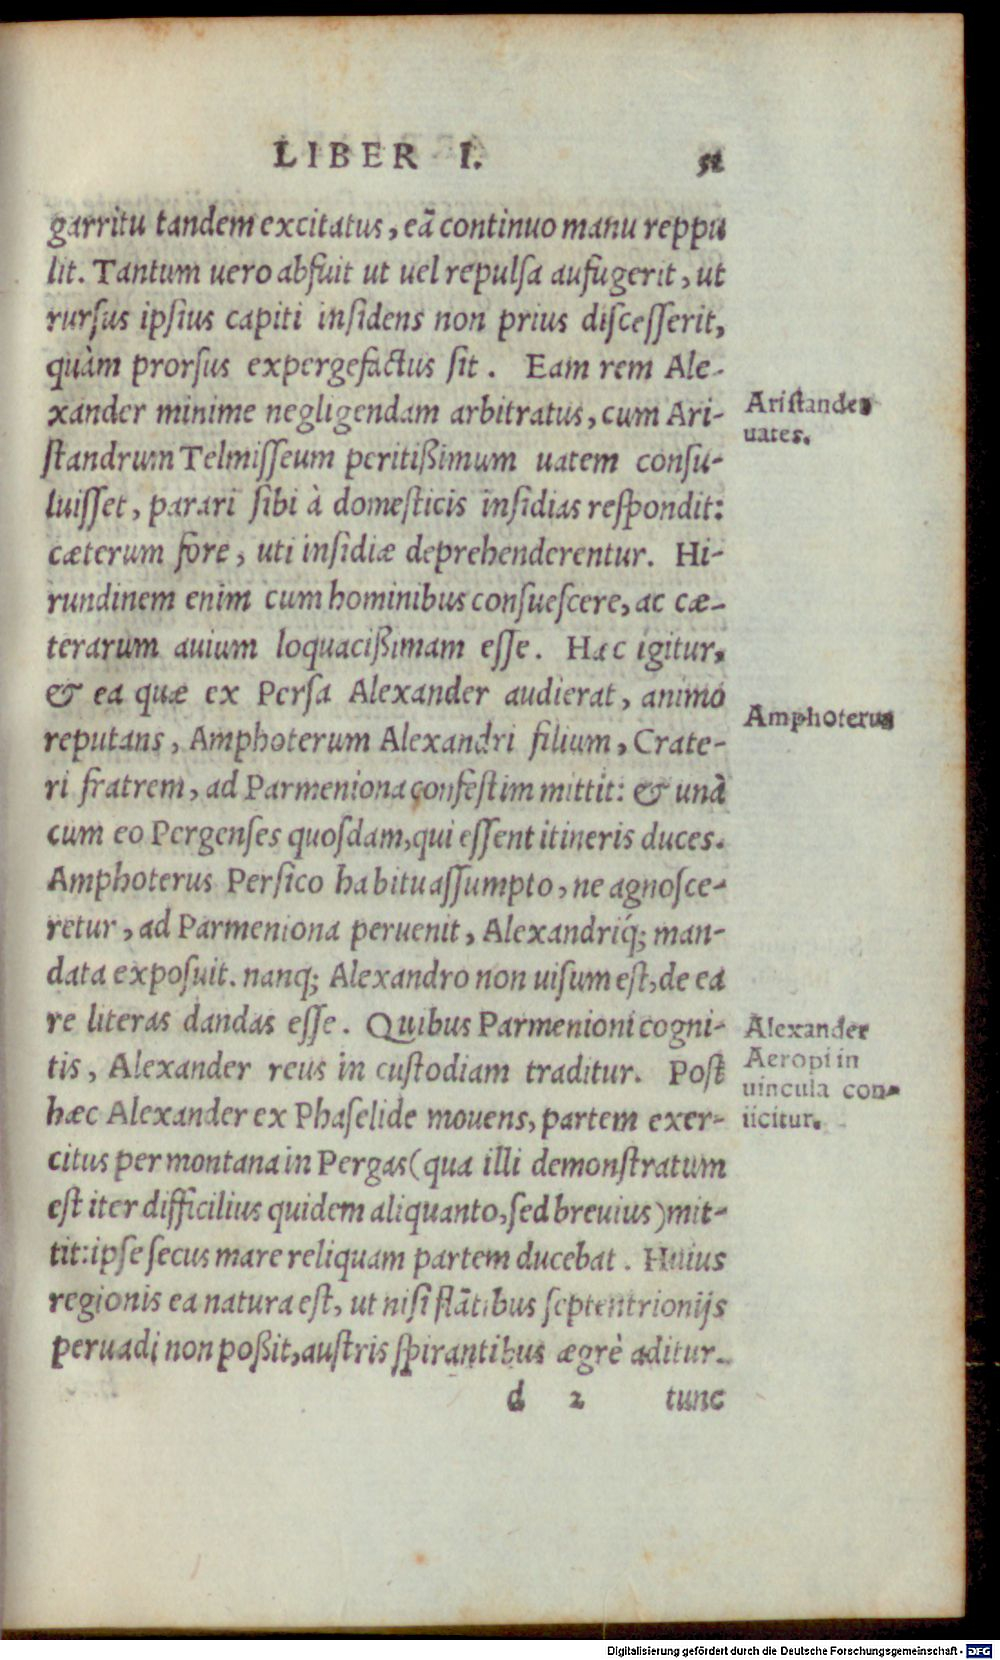 LIBER I. 51
garritu tandem excitatus, eã continuo manu reppu
lit. Tantum uero abfuit ut uel repulſa aufugerit, ut
rurſus ipſius capiti inſidens non prius diſceſſerit,
quàm prorſus expergefactus ſit. Eam rem Ale-
xander minime negligendam arbitratus, cum Ari-
ſtandrum Telmiſſeum peritißimum uatem conſu-
luiſſet, parari ſibi à domeſticis inſidias reſpondit:
cæterum fore, uti inſidiæ deprehenderentur. Hi-
rundinem enim cum hominibus conſueſcere, ac cæ-
terarum auium loquacißimam eſſe. Hæc igitur,
& ea quæ ex Perſa Alexander audierat, animo
reputans, Amphoterum Alexandri filium, Crate-
ri fratrem, ad Parmeniona confeſtim mittit: & unà
cum eo Pergenſes quoſdam, qui eſſent itineris duces.
Amphoterus Perſico habitu aſſumpto, ne agnoſce-
retur, ad Parmeniona peruenit, Alexandriq́; man-
data expoſuit. nanq; Alexandro non uiſum eſt, de ea
re literas dandas eſſe. Quibus Parmenioni cogni-
tis, Alexander reus in cuſtodiam traditur. Poſt
hæc Alexander ex Phaſelide mouens, partem exer-
citus per montana in Pergas (qua illi demonſtratum
eſt iter difficilius quidem aliquanto, ſed breuius) mit-
tit: ipſe ſecus mare reliquam partem ducebat. Huius
regionis ea natura eſt, ut niſi flãtibus ſeptentrionijs
peruadi non poßit, auſtris ſpirantibus ægrè aditur.
d 2 tunc
Ariſtander
uates.
Amphoterus
Alexander
Aeropi in
uincula con-
iicitur.
Digitalisierung gefördert durch die Deutsche Forschungsgemeinschaft - DFG